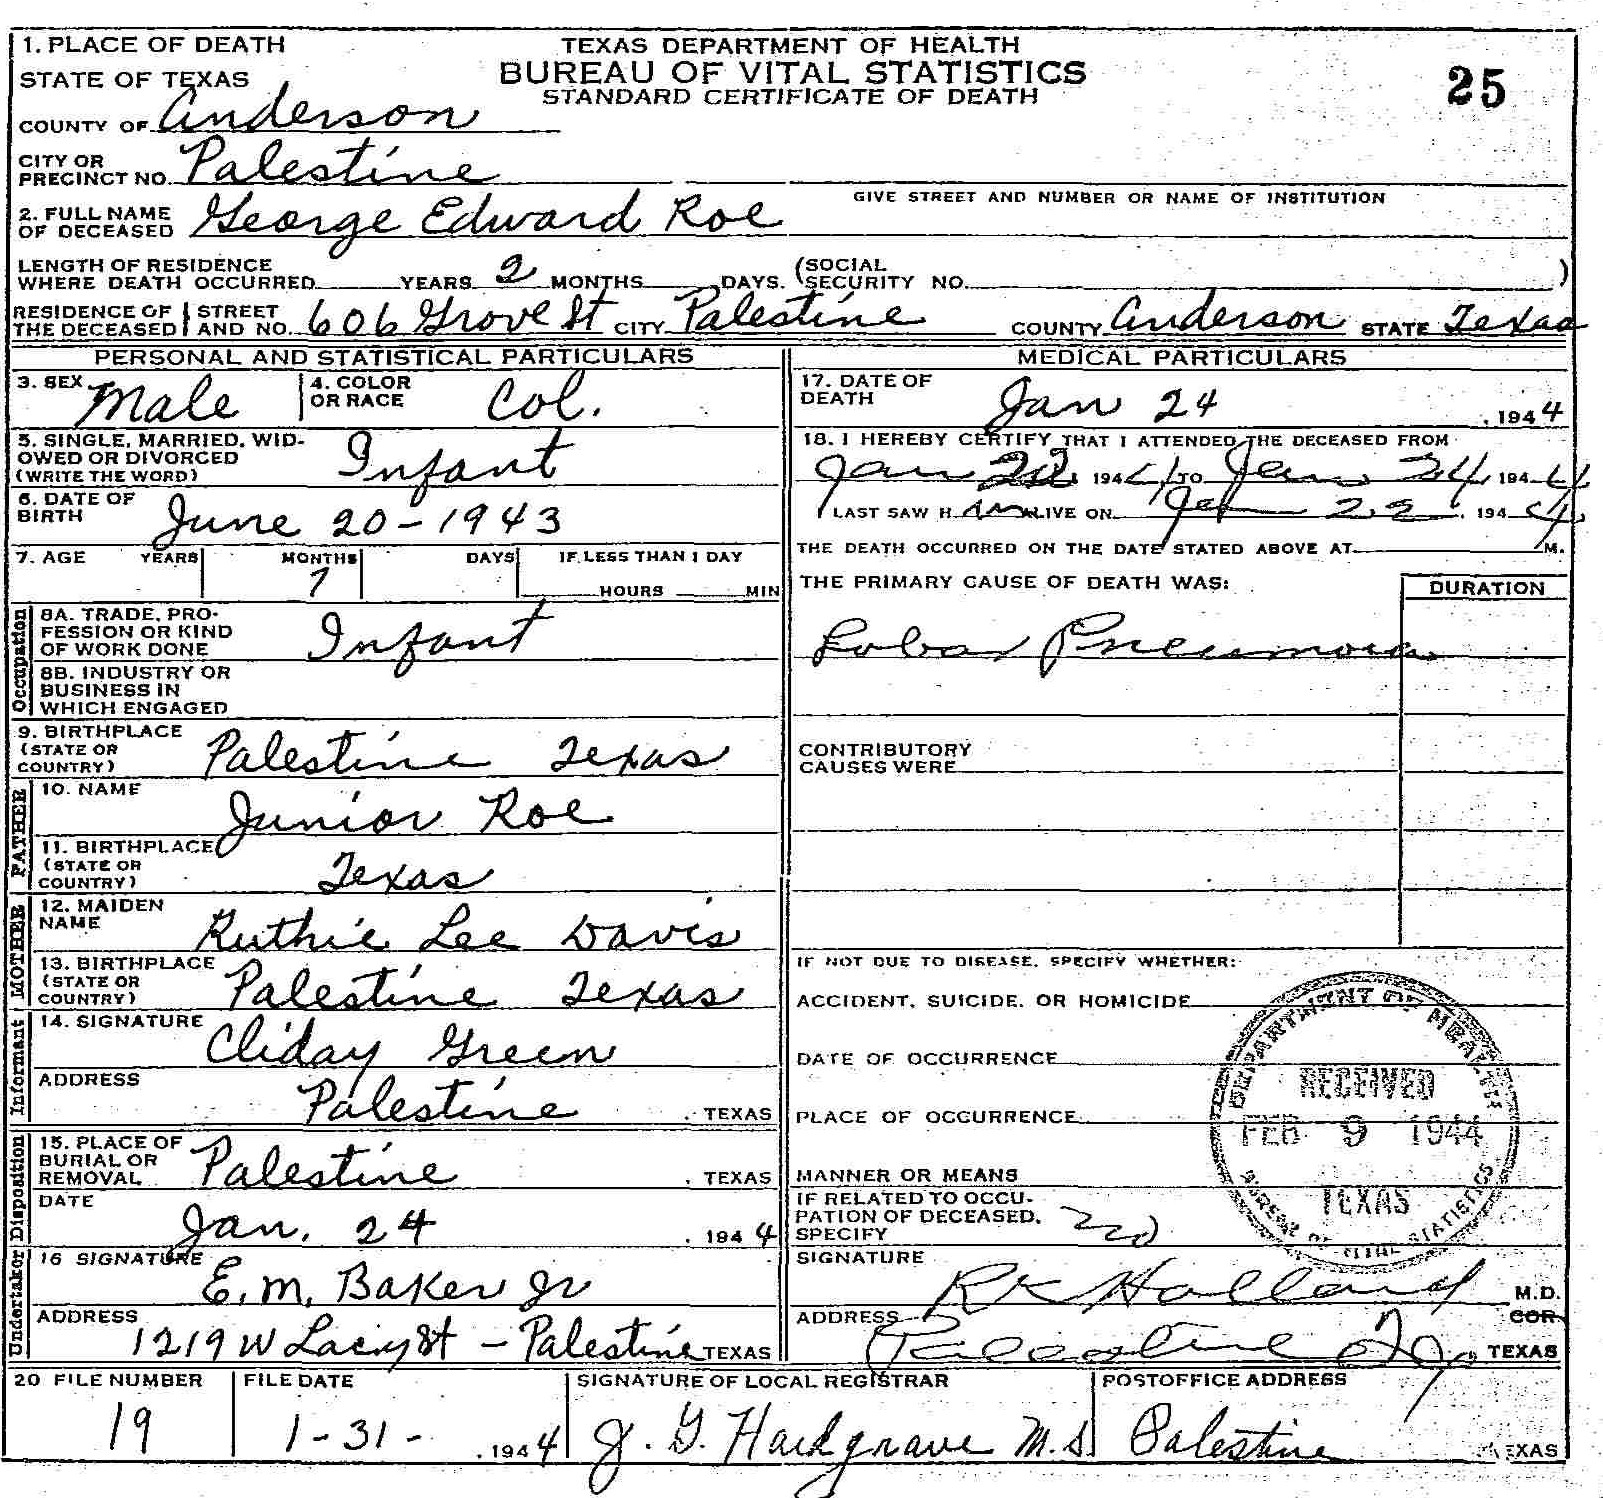 1. PLACE OF DEATH
STATE OF TEXAS
TEXAS DEPARTMENT OF HEALTH
BUREAU OF VITAL STATISTICS
STANDARD CERTIFICATE OF DEATH
25
COUNTY OF Anderson
CITY OR PRECINCT NO. Palestine
GIVE STREET AND NUMBER OR NAME OF INSTITUTION
2. FULL NAME OF DECEASED George Edward Roe
LENGTH OF RESIDENCE WHERE DEATH OCCURRED YEARS 2 MONTHS DAYS. (SOCIAL SECURITY NO. )
RESIDENCE OF THE DECEASED STREET AND NO. 606 Grove St CITY Palestine COUNTY Anderson STATE Texas
PERSONAL AND STATISTICAL PARTICULARS
3. SEX Male 4. COLOR OR RACE Col.
5. SINGLE, MARRIED, WIDOWED OR DIVORCED (WRITE THE WORD) Infant
6. DATE OF BIRTH June 20-1943
7. AGE YEARS MONTHS 7 DAYS IF LESS THAN 1 DAY HOURS MIN
Occupation
8A. TRADE, PROFESSION OR KIND OF WORK DONE Infant
8B. INDUSTRY OR BUSINESS IN WHICH ENGAGED
9. BIRTHPLACE (STATE OR COUNTRY) Palestine Texas
FATHER
10. NAME Junior Roe
11. BIRTHPLACE (STATE OR COUNTRY) Texas
MOTHER
12. MAIDEN NAME Ruthie Lee Davis
13. BIRTHPLACE (STATE OR COUNTRY) Palestine Texas
Informant
14. SIGNATURE Cliday Green
ADDRESS Palestine, TEXAS
Disposition
15. PLACE OF BURIAL OR REMOVAL Palestine, TEXAS
DATE Jan. 24, 1944
Undertaker
16 SIGNATURE E. M. Baker Jr
ADDRESS 1219 W Lacy St - Palestine TEXAS
MEDICAL PARTICULARS
17. DATE OF DEATH Jan 24, 1944
18. I HEREBY CERTIFY THAT I ATTENDED THE DECEASED FROM
Jan 22 1944 TO Jan 24, 1944
I LAST SAW H im ALIVE ON Jan 22, 1944
THE DEATH OCCURRED ON THE DATE STATED ABOVE AT M.
THE PRIMARY CAUSE OF DEATH WAS: DURATION
Lobar Pneumonia
CONTRIBUTORY CAUSES WERE
IF NOT DUE TO DISEASE, SPECIFY WHETHER:
ACCIDENT, SUICIDE, OR HOMICIDE
DATE OF OCCURRENCE
PLACE OF OCCURRENCE
MANNER OR MEANS
IF RELATED TO OCCUPATION OF DECEASED, SPECIFY no
DEPARTMENT OF HEALTH
RECEIVED
FEB 9 1944
TEXAS
BUREAU OF VITAL STATISTICS
SIGNATURE RK Holland M.D.
COR
ADDRESS Palestine Tex, TEXAS
20 FILE NUMBER 19
FILE DATE 1-31-, 1944
SIGNATURE OF LOCAL REGISTRAR J. G. Hardgrave M.D.
POSTOFFICE ADDRESS Palestine TEXAS